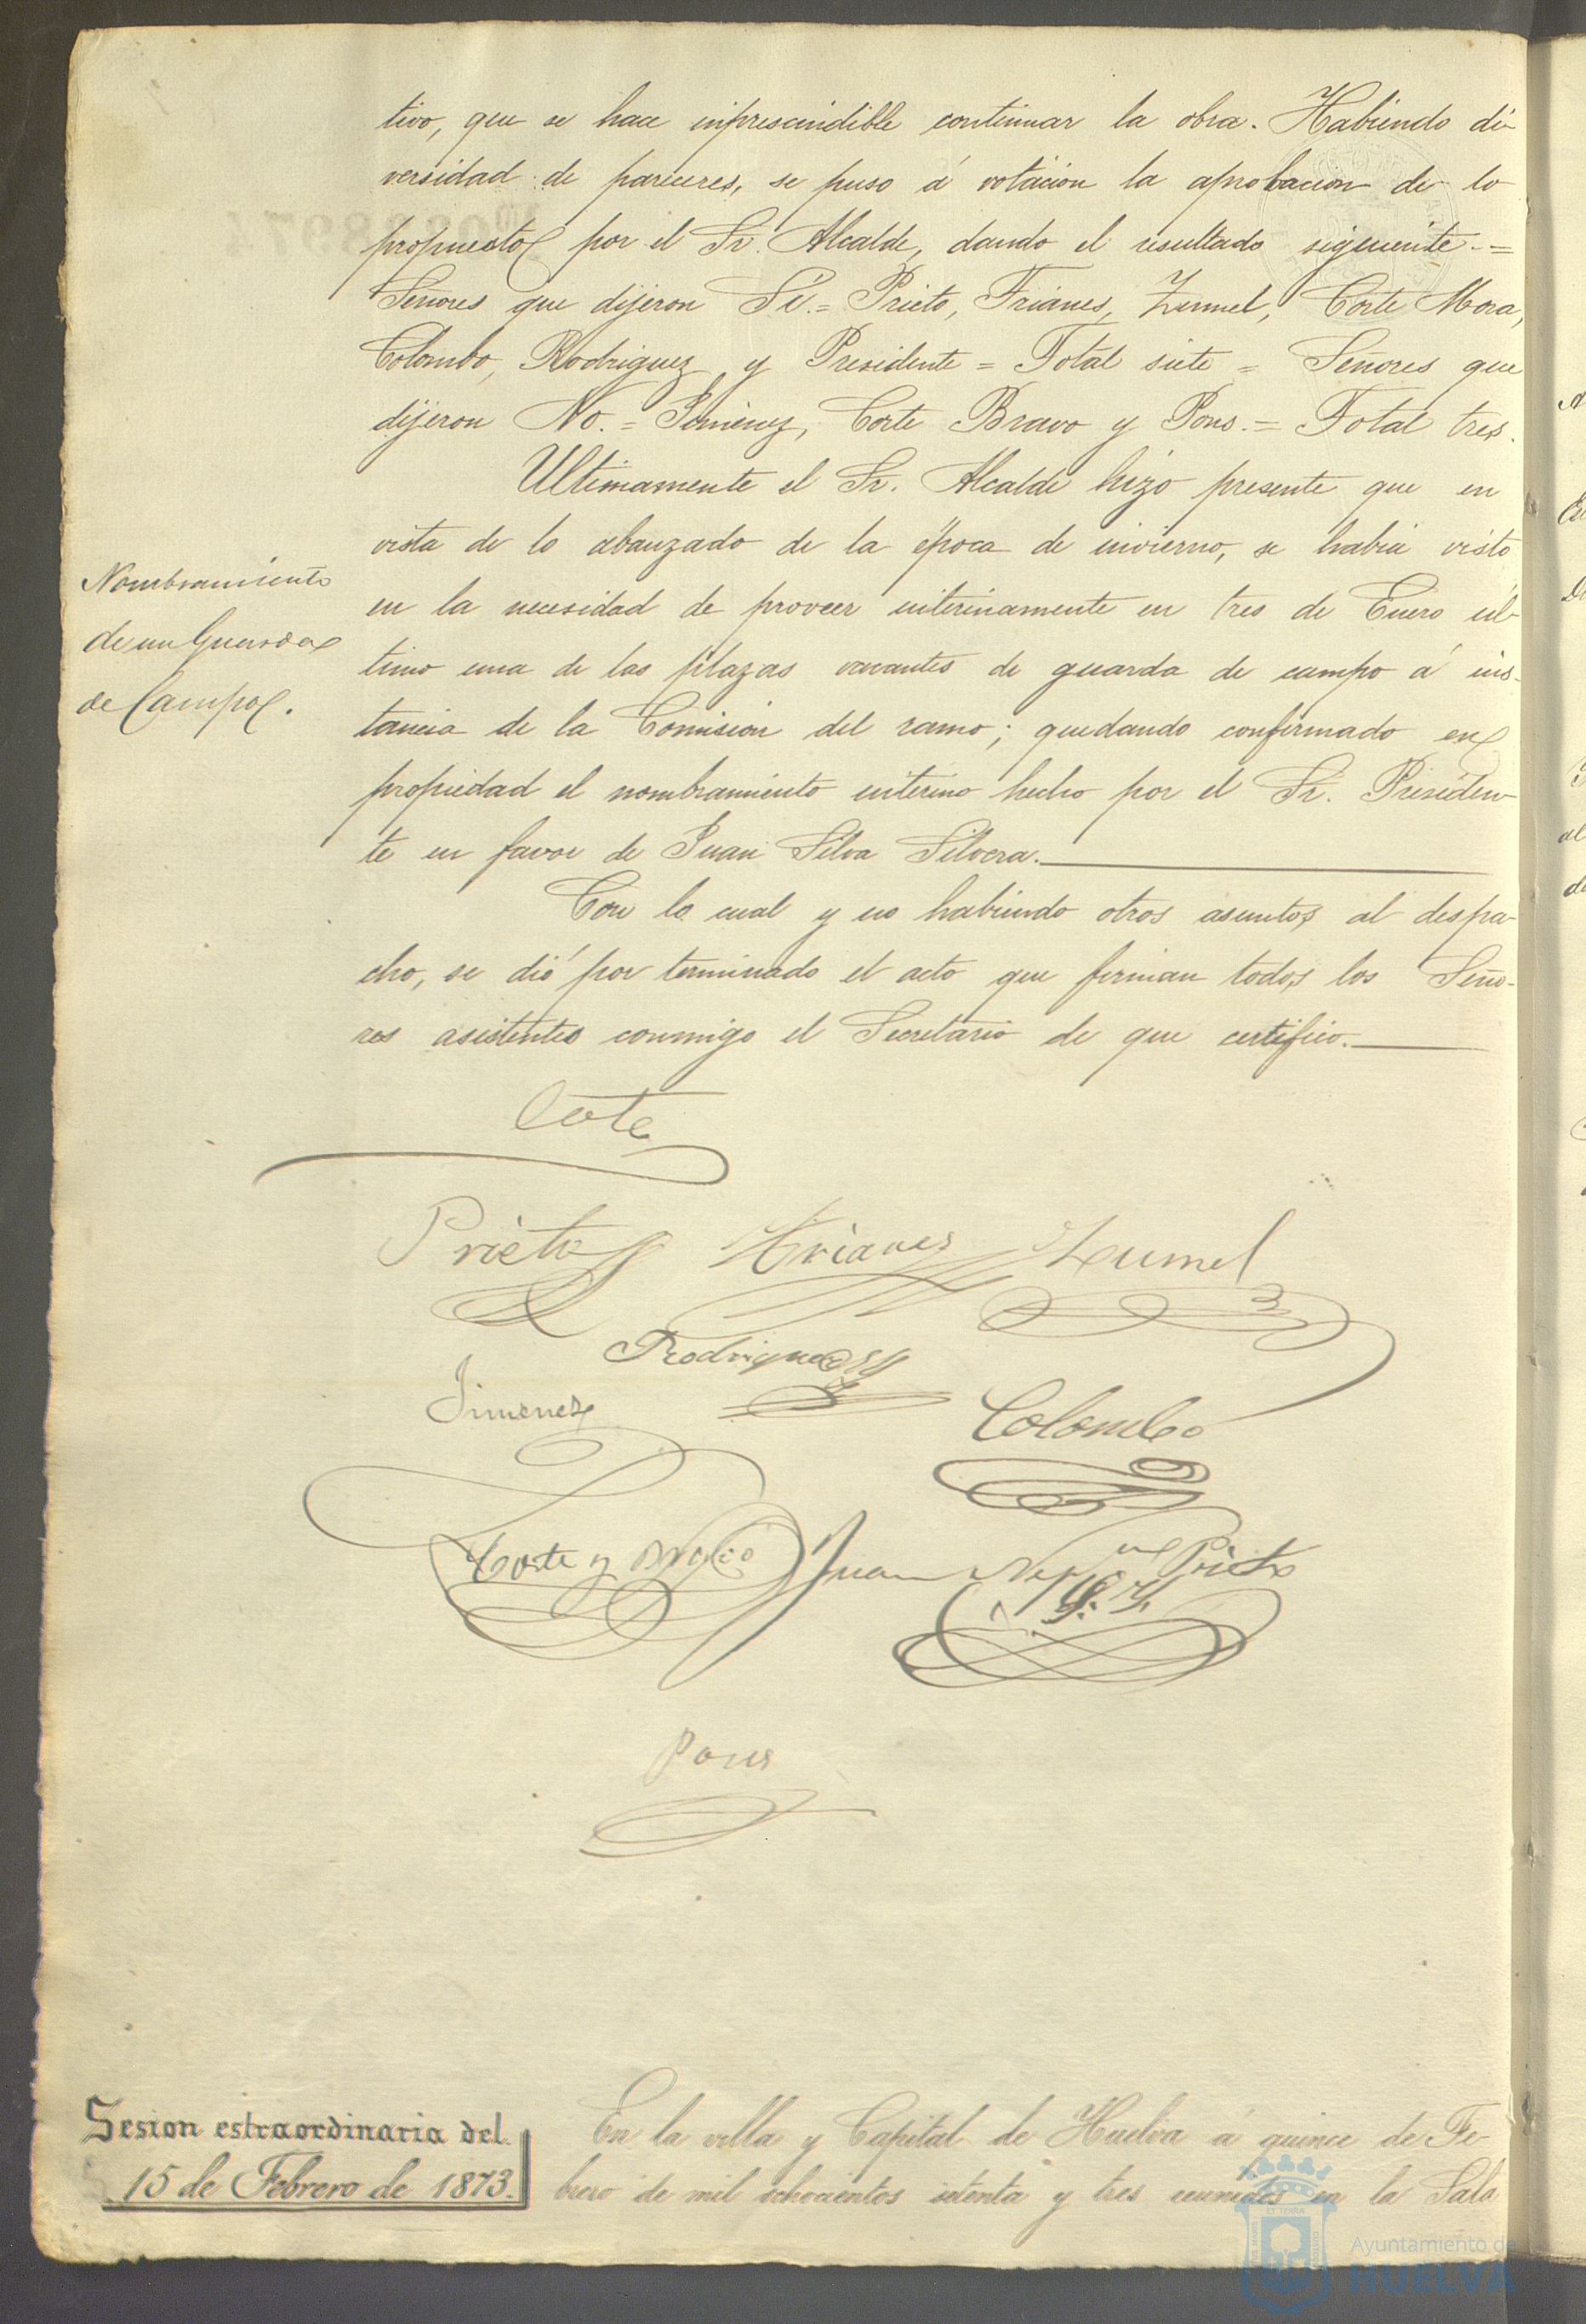 tivo, que se hace inprescindible continuar la obra. Habiendo di-
versidad de pareceres, se puso á votacion la aprobacion de lo
propuesto por el Sr. Alcalde, dando el resultado siguiente.=
Señores que dijeron Sí.= Prieto, Trianes, Zumel, Corte Mora,
Colombo, Rodriguez y Presidente = Total siete = Señores que
dijeron No.= Jimenez, Corte Bravo y Pons.= Total tres.
Ultimamente el Sr. Alcalde hizo presente que en
vista de lo abanzado de la época de invierno, se habia visto
Nombramiento
de un Guarda
de Campo.
en la necesidad de proveer interinamente en tres de Enero úl-
timo una de las plazas vacantes de guarda de campo á ins-
tancia de la Comision del ramo; quedando confirmado en
propiedad el nombramiento interino hecho por el Sr. Presiden-
te en favor de Juan Silva Silvera.
Con lo cual y no habiendo otros asuntos al despa-
cho, se dió por terminado el acto que firman todos los Seño-
res asistentes conmigo el Secretario de que certifico.
Corte
Prieto Trianes Zumel
Rodriguez
Jimenez
Colombo
Corte y Bravo
Juan Prieto
Pons
Sesion estraordinaria del
15 de Febrero de 1873.
En la villa y Capital de Huelva á quince de Fe-
brero de mil ochocientos setenta y tres reunidos en la Sala
Ayuntamiento de
HUELVA